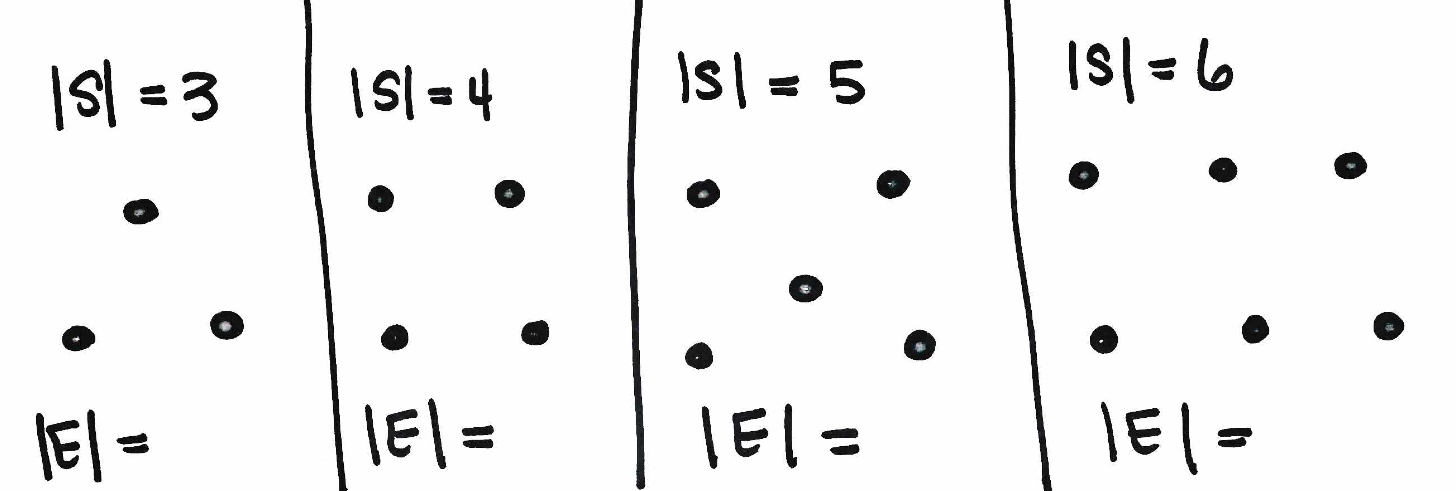 |S| = 3
|E| =
|S| = 4
|E| =
|S| = 5
|E| =
|S| = 6
|E| =